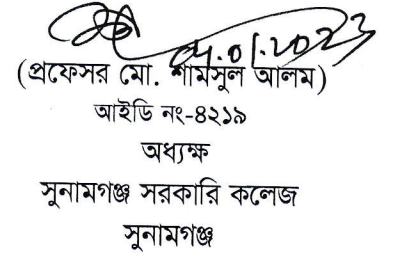 04.01.2023
(প্রফেসর মো. শামসুল আলম)
আইডি নং-৪২১৯
অধ্যক্ষ
সুনামগঞ্জ সরকারি কলেজ
সুনামগঞ্জ